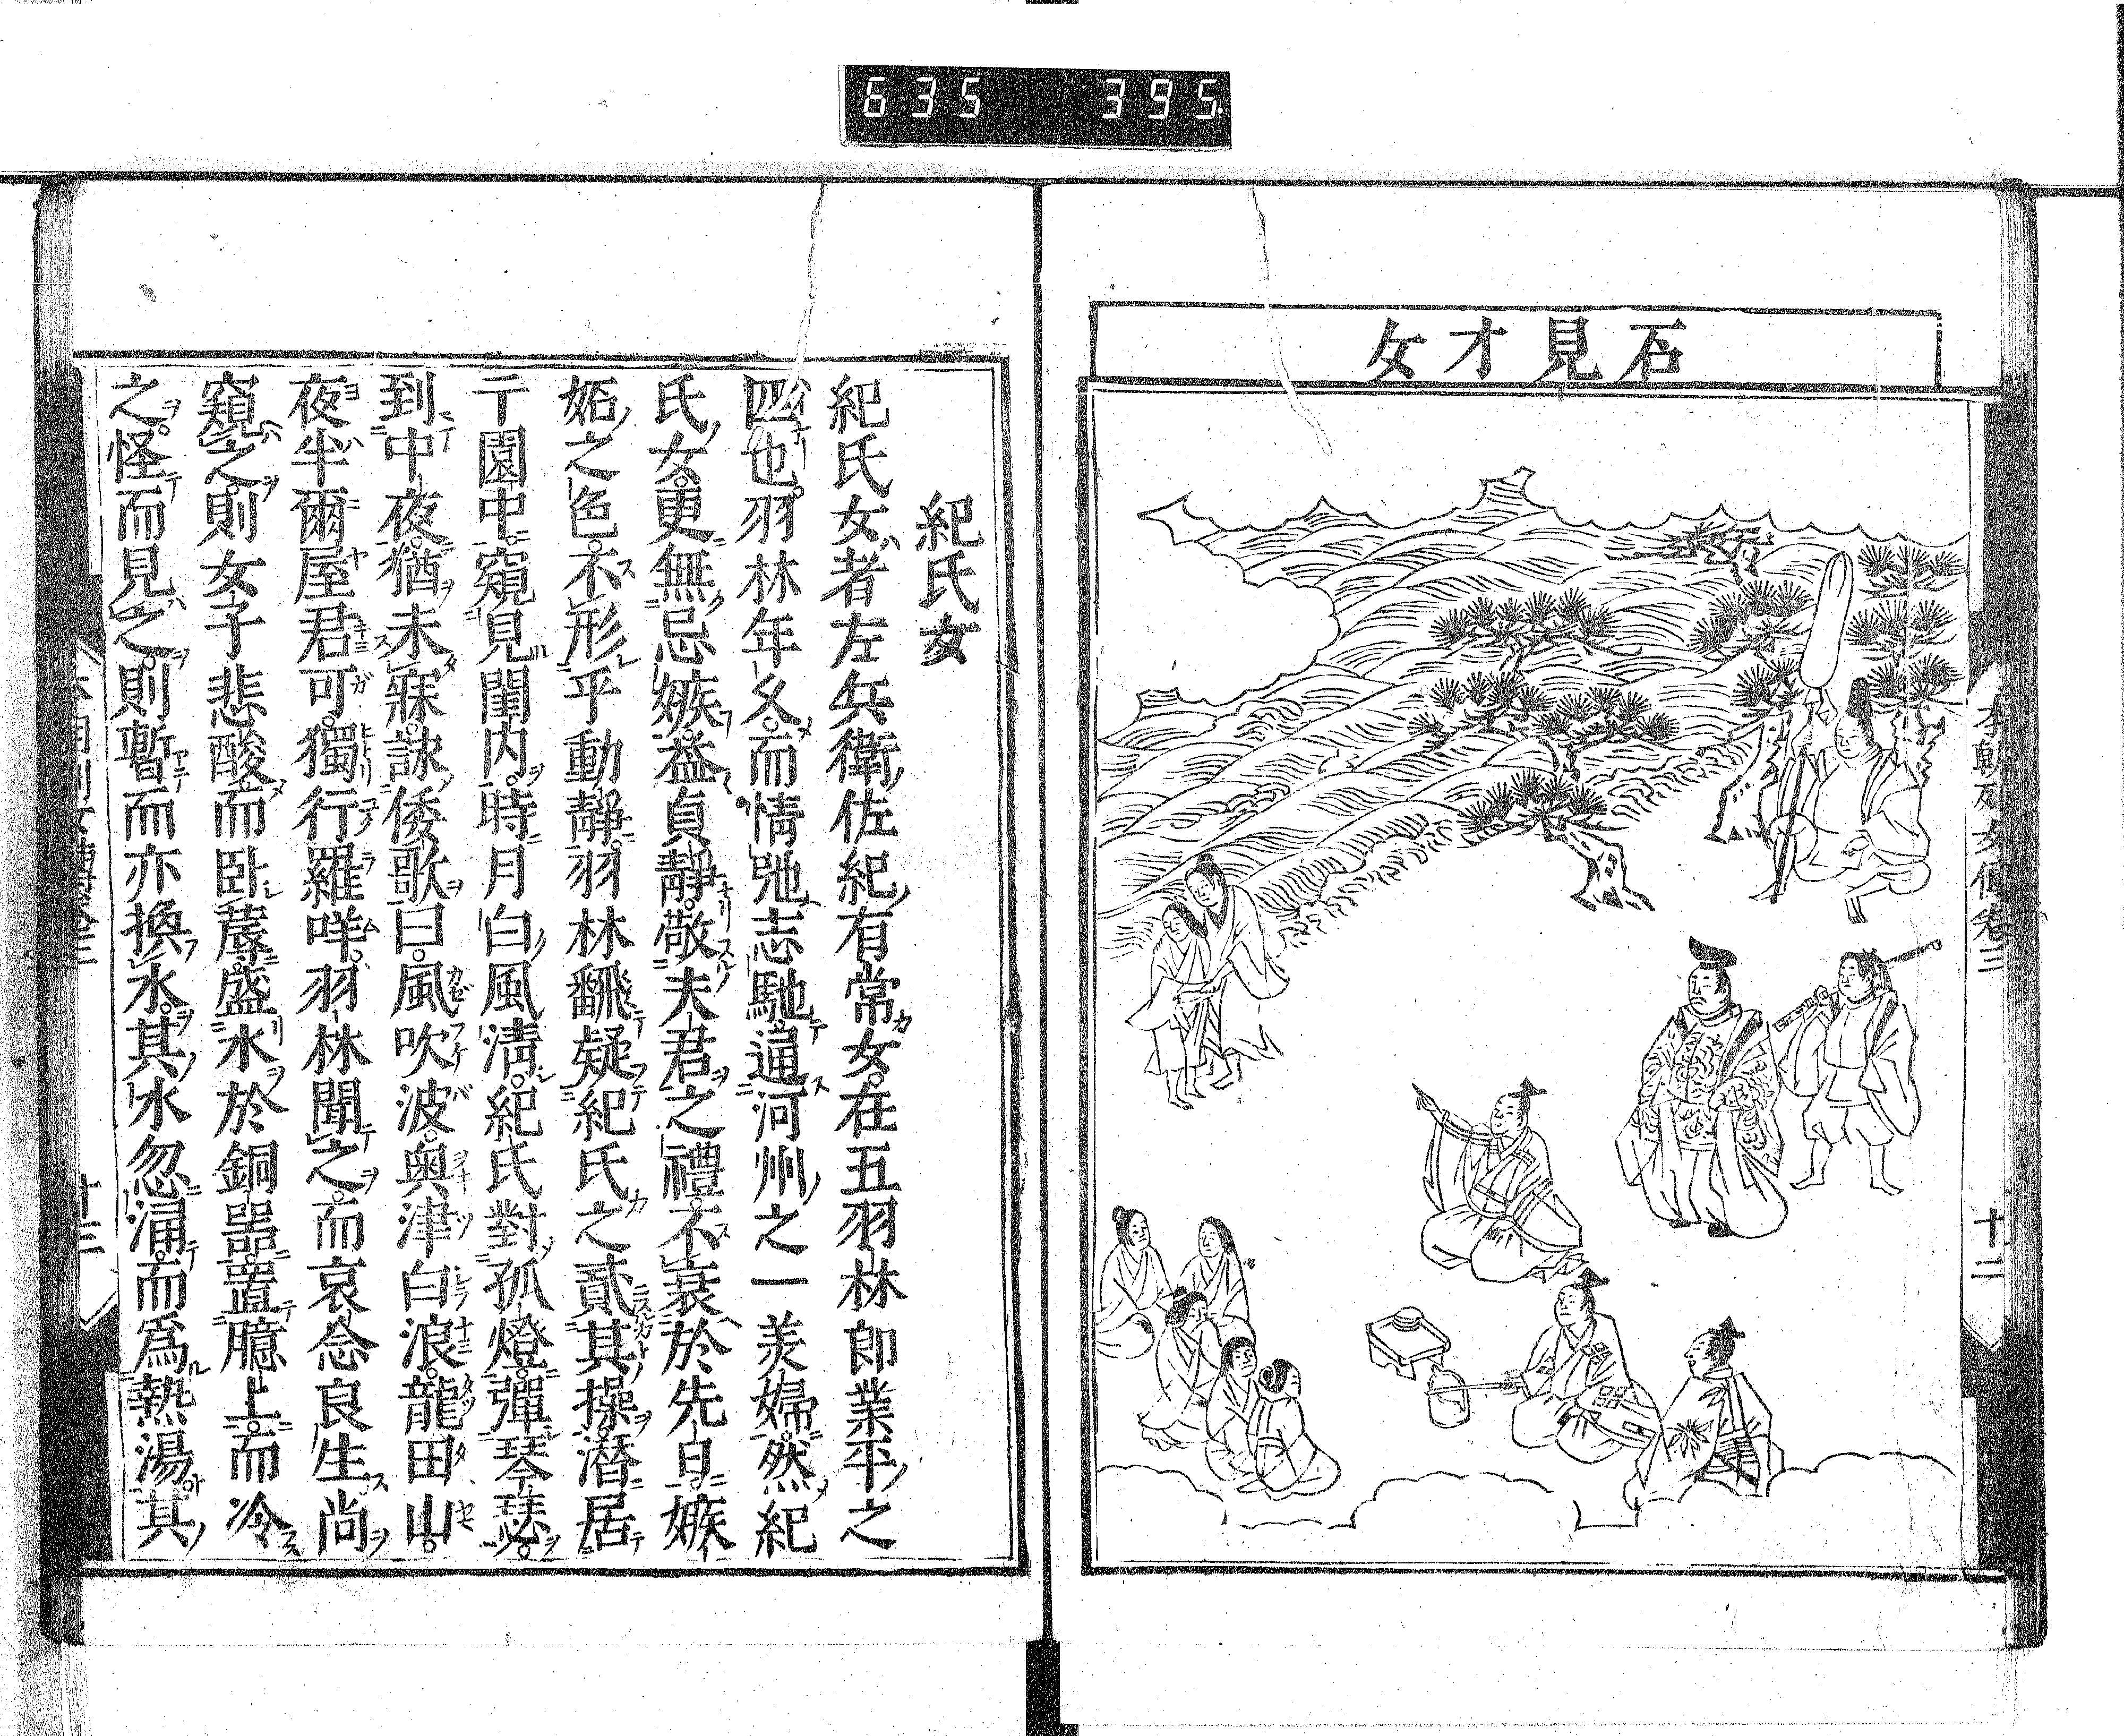 635 395.
石見才女
本朝列女傳卷三 十二
紀氏女
紀氏女者左兵衛佐紀有常女在五羽林郎業平之
四也羽林年父而情弛志馳通河州之一美婦然紀
氏女更無忌嫉益貞靜敬夫君之禮不衰於先日嫉
妬之色不形乎動靜羽林飜疑紀氏之貳其操潛居
于園中窺見閨内時月白風淸紀氏對孤燈彈琴瑟
到中夜猶未寐詠倭歌曰風吹波奥津白浪龍田山
夜半爾屋君可獨行羅咩羽林聞之而哀念良生尚
窺之則女子悲酸而臥蓐盛水於銅器置臆上而冷
之怪而見之則暫而亦換水其水忽涌而爲熱湯其
本朝列女傳卷三 十三